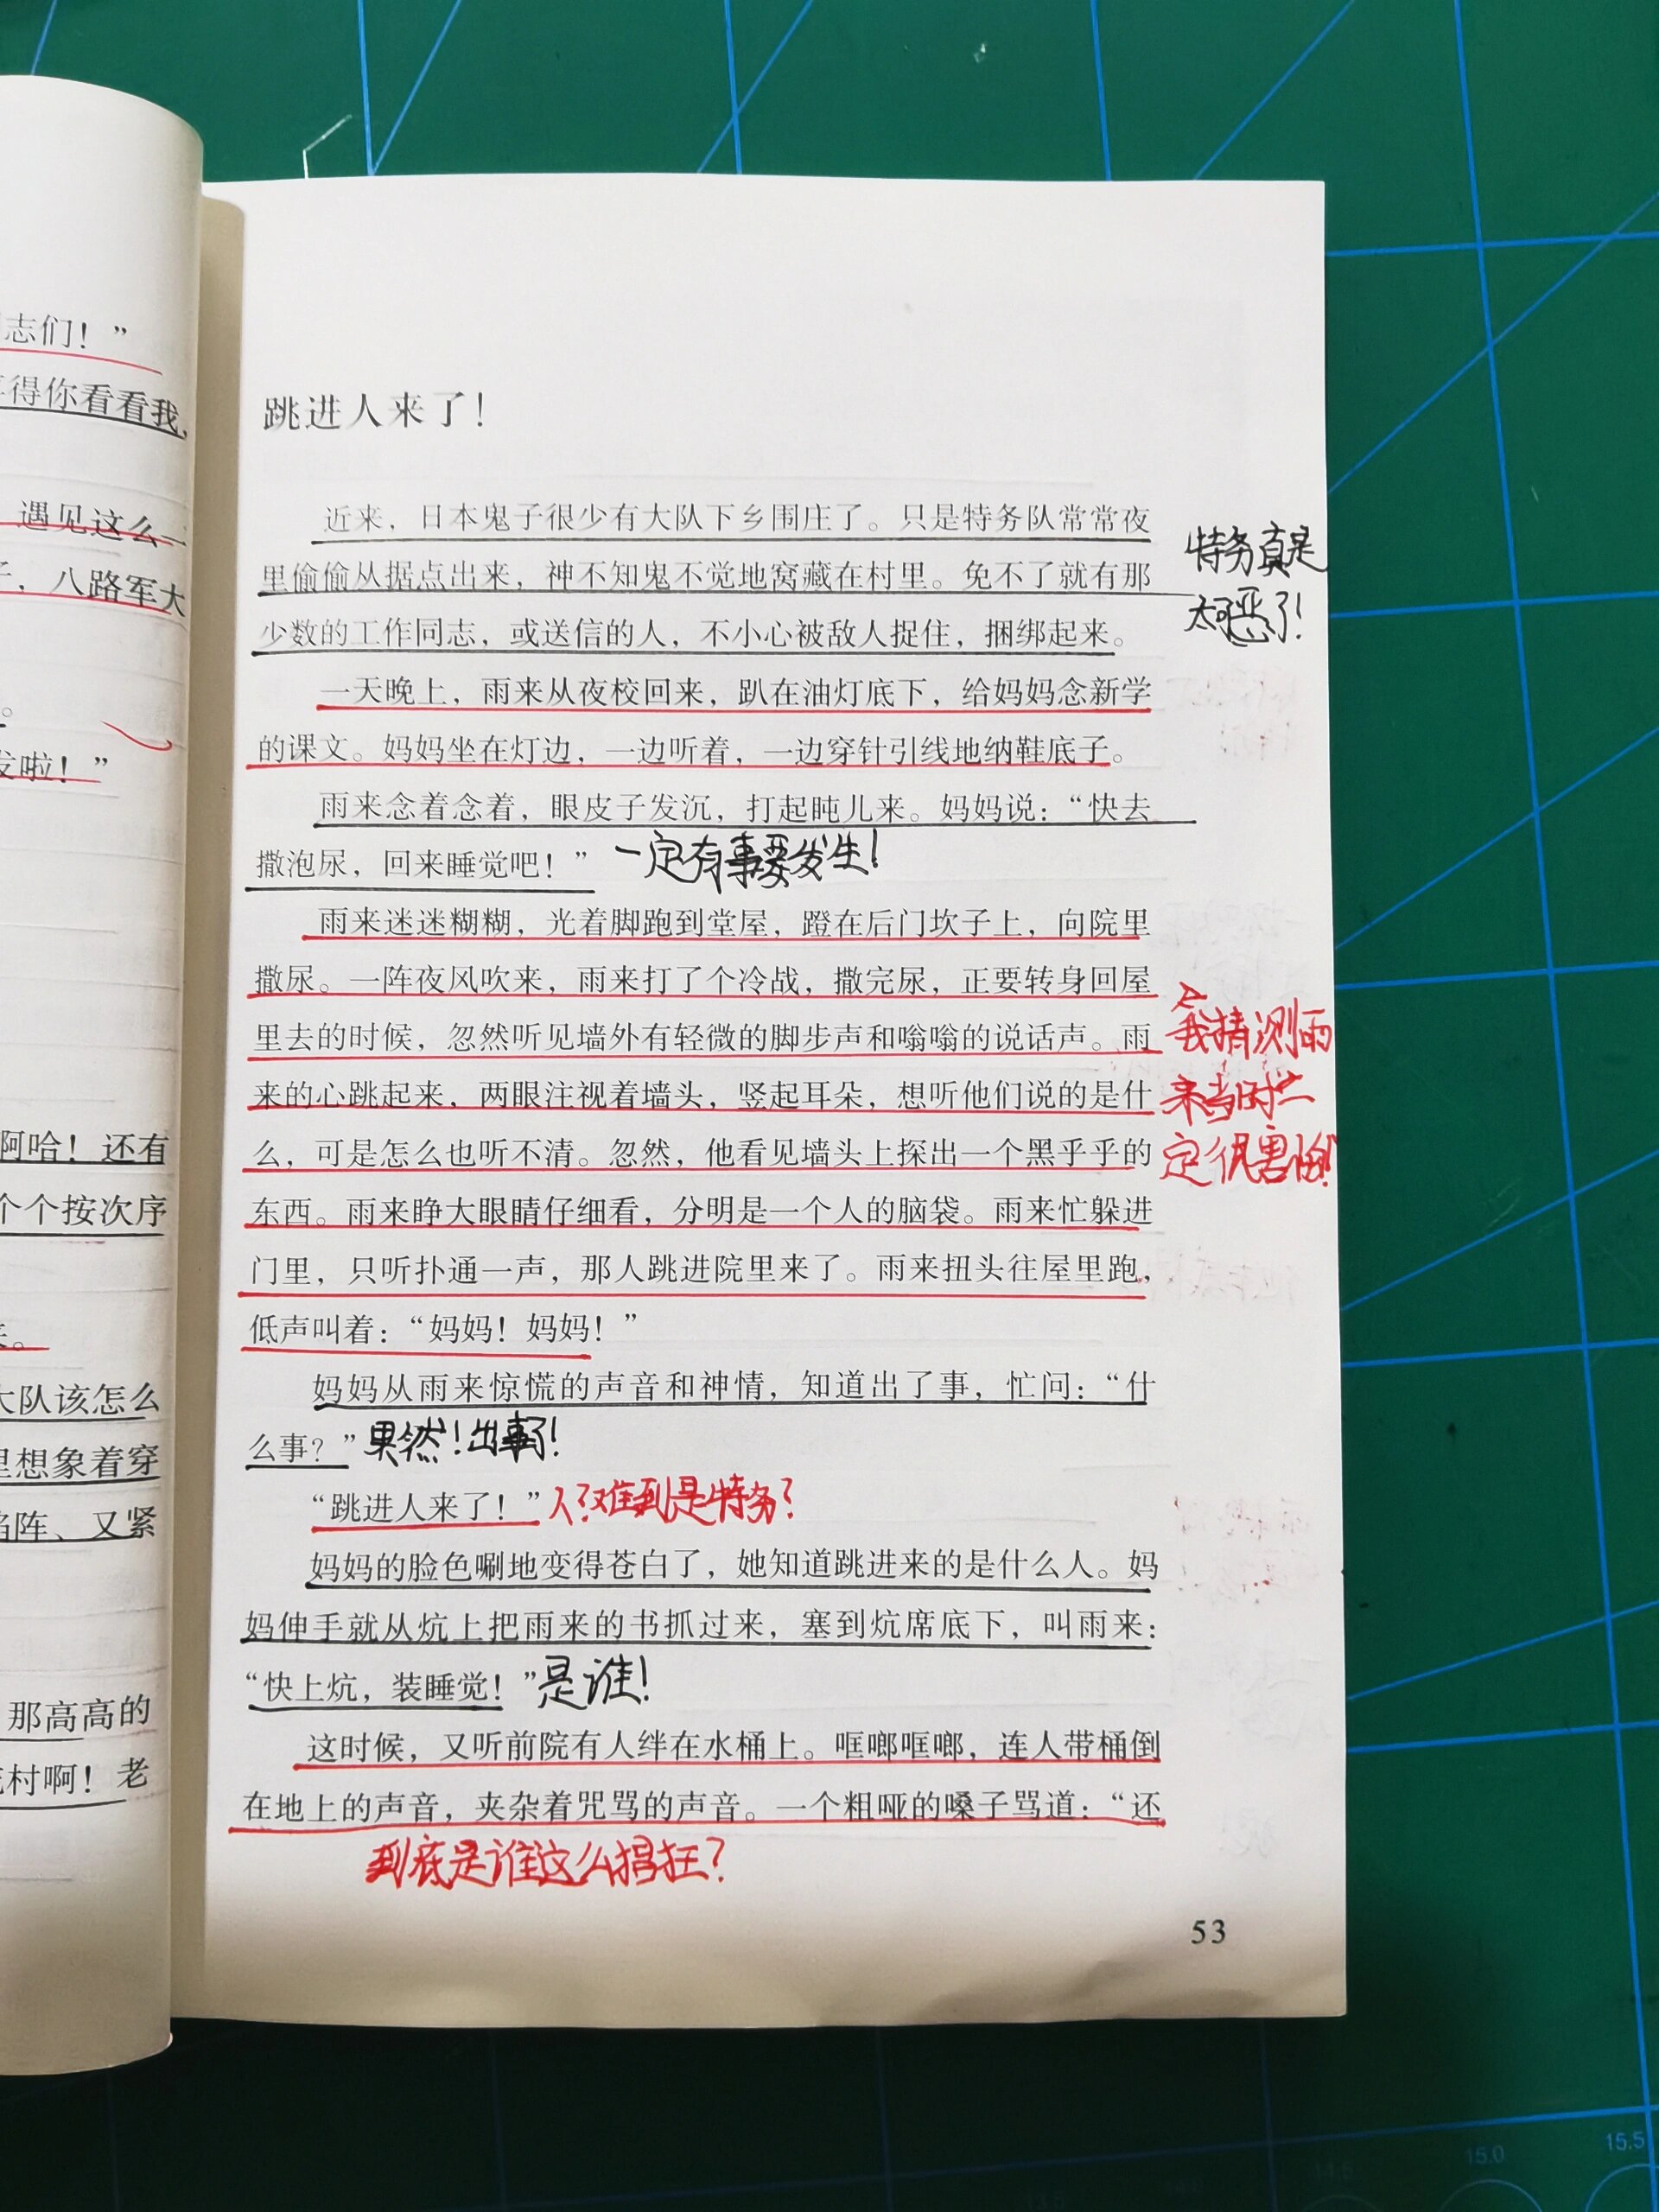 志们！”
得你看看我，
遇见这么一
，八路军大
。
发啦！”
啊哈！还有
个个按次序
。
大队该怎么
里想象着穿
阵、又紧
那高高的
村啊！老
跳进人来了！
近来，日本鬼子很少有大队下乡围庄了。只是特务队常常夜
里偷偷从据点出来，神不知鬼不觉地窝藏在村里。免不了就有那
少数的工作同志，或送信的人，不小心被敌人捉住，捆绑起来。
特务真是
太可恶了！
一天晚上，雨来从夜校回来，趴在油灯底下，给妈妈念新学
的课文。妈妈坐在灯边，一边听着，一边穿针引线地纳鞋底子。
雨来念着念着，眼皮子发沉，打起盹儿来。妈妈说：“快去
撒泡尿，回来睡觉吧！”一定有事要发生！
雨来迷迷糊糊，光着脚跑到堂屋，蹬在后门坎子上，向院里
撒尿。一阵夜风吹来，雨来打了个冷战，撒完尿，正要转身回屋
里去的时候，忽然听见墙外有轻微的脚步声和嗡嗡的说话声。雨
来的心跳起来，两眼注视着墙头，竖起耳朵，想听他们说的是什
么，可是怎么也听不清。忽然，他看见墙头上探出一个黑乎乎的
东西。雨来睁大眼睛仔细看，分明是一个人的脑袋。雨来忙躲进
门里，只听扑通一声，那人跳进院里来了。雨来扭头往屋里跑，
低声叫着：“妈妈！妈妈！”
我猜测雨
来当时一
定很害怕！
妈妈从雨来惊慌的声音和神情，知道出了事，忙问：“什
么事？”果然！出事了！
“跳进人来了！”人？难到是特务？
妈妈的脸色唰地变得苍白了，她知道跳进来的是什么人。妈
妈伸手就从炕上把雨来的书抓过来，塞到炕席底下，叫雨来：
“快上炕，装睡觉！”是谁！
这时候，又听前院有人绊在水桶上。哐啷哐啷，连人带桶倒
在地上的声音，夹杂着咒骂的声音。一个粗哑的嗓子骂道：“还
到底是谁这么猖狂？
53
15.0
15.5